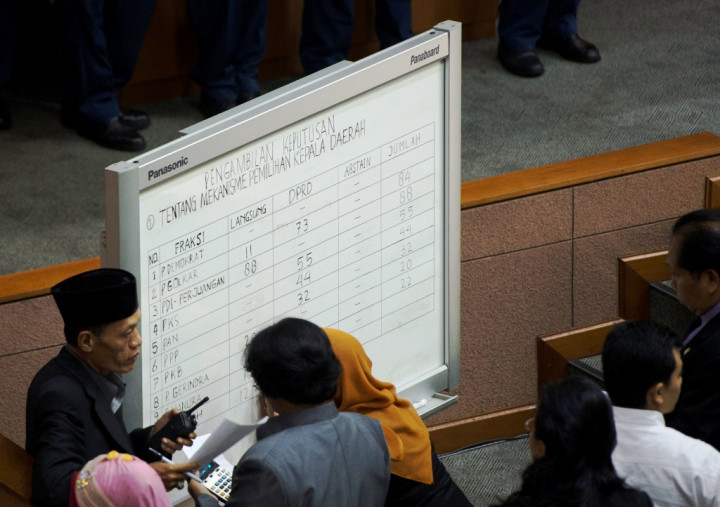 Panasonic
Panaboard
PENGAMBILAN KEPUTUSAN
1 TENTANG MEKANISME PEMILIHAN KEPALA DAERAH
NO. FRAKSI LANGSUNG DPRD ABSTAIN JUMLAH
1 P.DEMOKRAT - - -
2 P.GOLKAR 11 73 - 84
3 PDI-PERJUANGAN 88 - - 88
4 PKS - 55 - 55
5 PAN - 44 - 44
6 PPP - 32 - 32
7 PKB - - 20
8 P GERINDRA 22